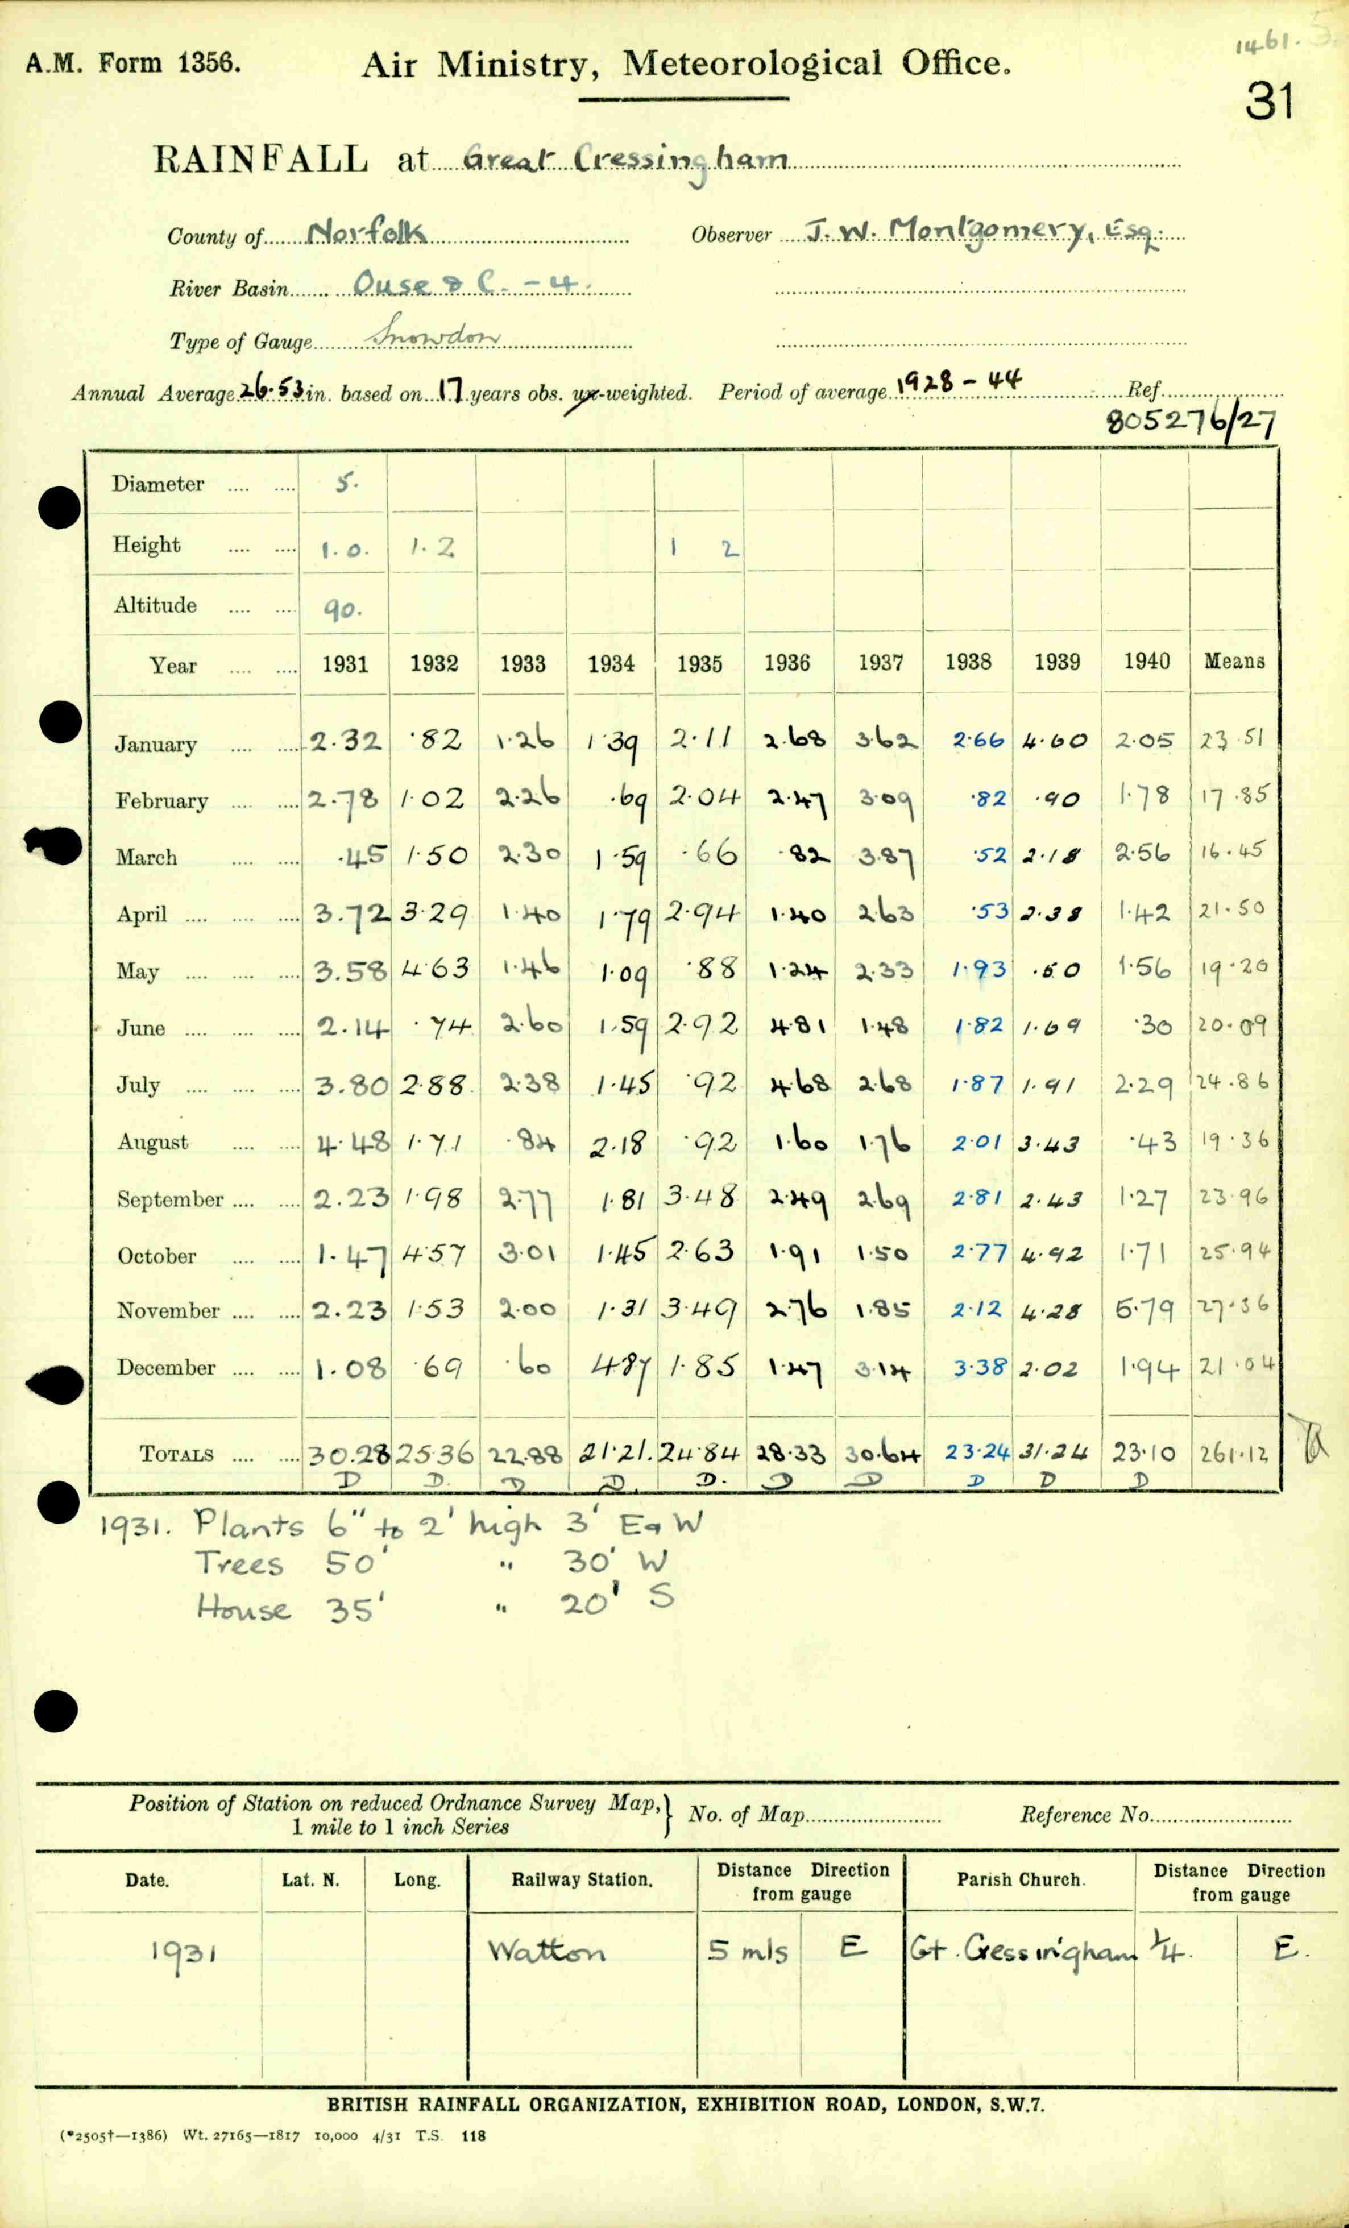 1461. 5.
A.M. Form 1356.
Air Ministry, Meteorological Office.
31
RAINFALL at Great Cressingham
County of Norfolk Observer J. W. Montgomery, Esq.
River Basin Ouse & C. - 4.
Type of Gauge Snowdon
Annual Average 26.53 in. based on 17 years obs. un-weighted. Period of average 1928 - 44 Ref.
805276/27
Diameter 5.
Height 1. 0. 1. 2 1 2
Altitude 90.
Year 1931 1932 1933 1934 1935 1936 1937 1938 1939 1940 Means
January 2.32 .82 1.26 1.39 2.11 2.68 3.62 2.66 4.60 2.05 23.51
February 2.78 1.02 2.26 .69 2.04 2.47 3.09 .82 .90 1.78 17.85
March .45 1.50 2.30 1.59 .66 .82 3.87 .52 2.18 2.56 16.45
April 3.72 3.29 1.40 1.79 2.94 1.40 2.63 .53 2.38 1.42 21.50
May 3.58 4.63 1.46 1.09 .88 1.24 2.33 1.93 .50 1.56 19.20
June 2.14 .74 2.60 1.59 2.92 4.81 1.48 1.82 1.69 .30 20.09
July 3.80 2.88 2.38 1.45 .92 4.68 2.68 1.87 1.91 2.29 24.86
August 4.48 1.71 .84 2.18 .92 1.60 1.76 2.01 3.43 .43 19.36
September 2.23 1.98 2.77 1.81 3.48 2.49 2.69 2.81 2.43 1.27 23.96
October 1.47 4.57 3.01 1.45 2.63 1.91 1.50 2.77 4.92 1.71 25.94
November 2.23 1.53 2.00 1.31 3.49 2.76 1.85 2.12 4.28 5.79 27.36
December 1.08 .69 .60 4.87 1.85 1.47 3.14 3.38 2.02 1.94 21.04
TOTALS 30.28 25.36 22.88 21.21. 24.84 28.33 30.64 23.24 31.24 23.10 261.12
D D. D D. D. D D D D D
1931. Plants 6" to 2' high 3' E & W
Trees 50' " 30' W
House 35' " 20' S
Position of Station on reduced Ordnance Survey Map, No. of Map Reference No.
1 mile to 1 inch Series
Date. Lat. N. Long. Railway Station. Distance Direction from gauge Parish Church. Distance Direction from gauge
1931 Watton 5 mls E Gt. Cressingham 1/4. E.
BRITISH RAINFALL ORGANIZATION, EXHIBITION ROAD, LONDON, S.W.7.
(*2505†—1386) Wt. 27165—1817 10,000 4/31 T.S. 118